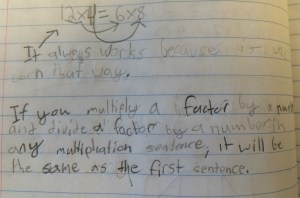 12x4=6x8
It always works because it
that way.
If you multiply a factor by a num
and divide a factor by a number in
any multiplication sentence, it will be
the same as the first sentence.